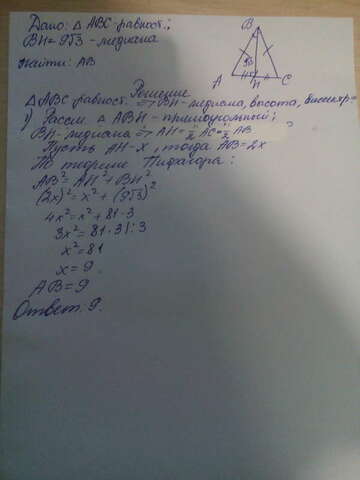 Дано: △ ABC-равност.;
BH=9√3 - медиана
Найти: AB
B
A H C
Решение
△ ABC-равност. => BH-медиана, высота, биссектр.
1) Рассм. △ ABH - прямоугольный;
BH-медиана => AH = 1/2 AC = 1/2 AB
Пусть AH-x, тогда AB=2x
По теореме Пифагора:
AB² = AH² + BH²
(2x)² = x² + (9√3)²
4x² = x² + 81·3
3x² = 81·3 |:3
x² = 81
x = 9
AB = 9
Ответ: 9.